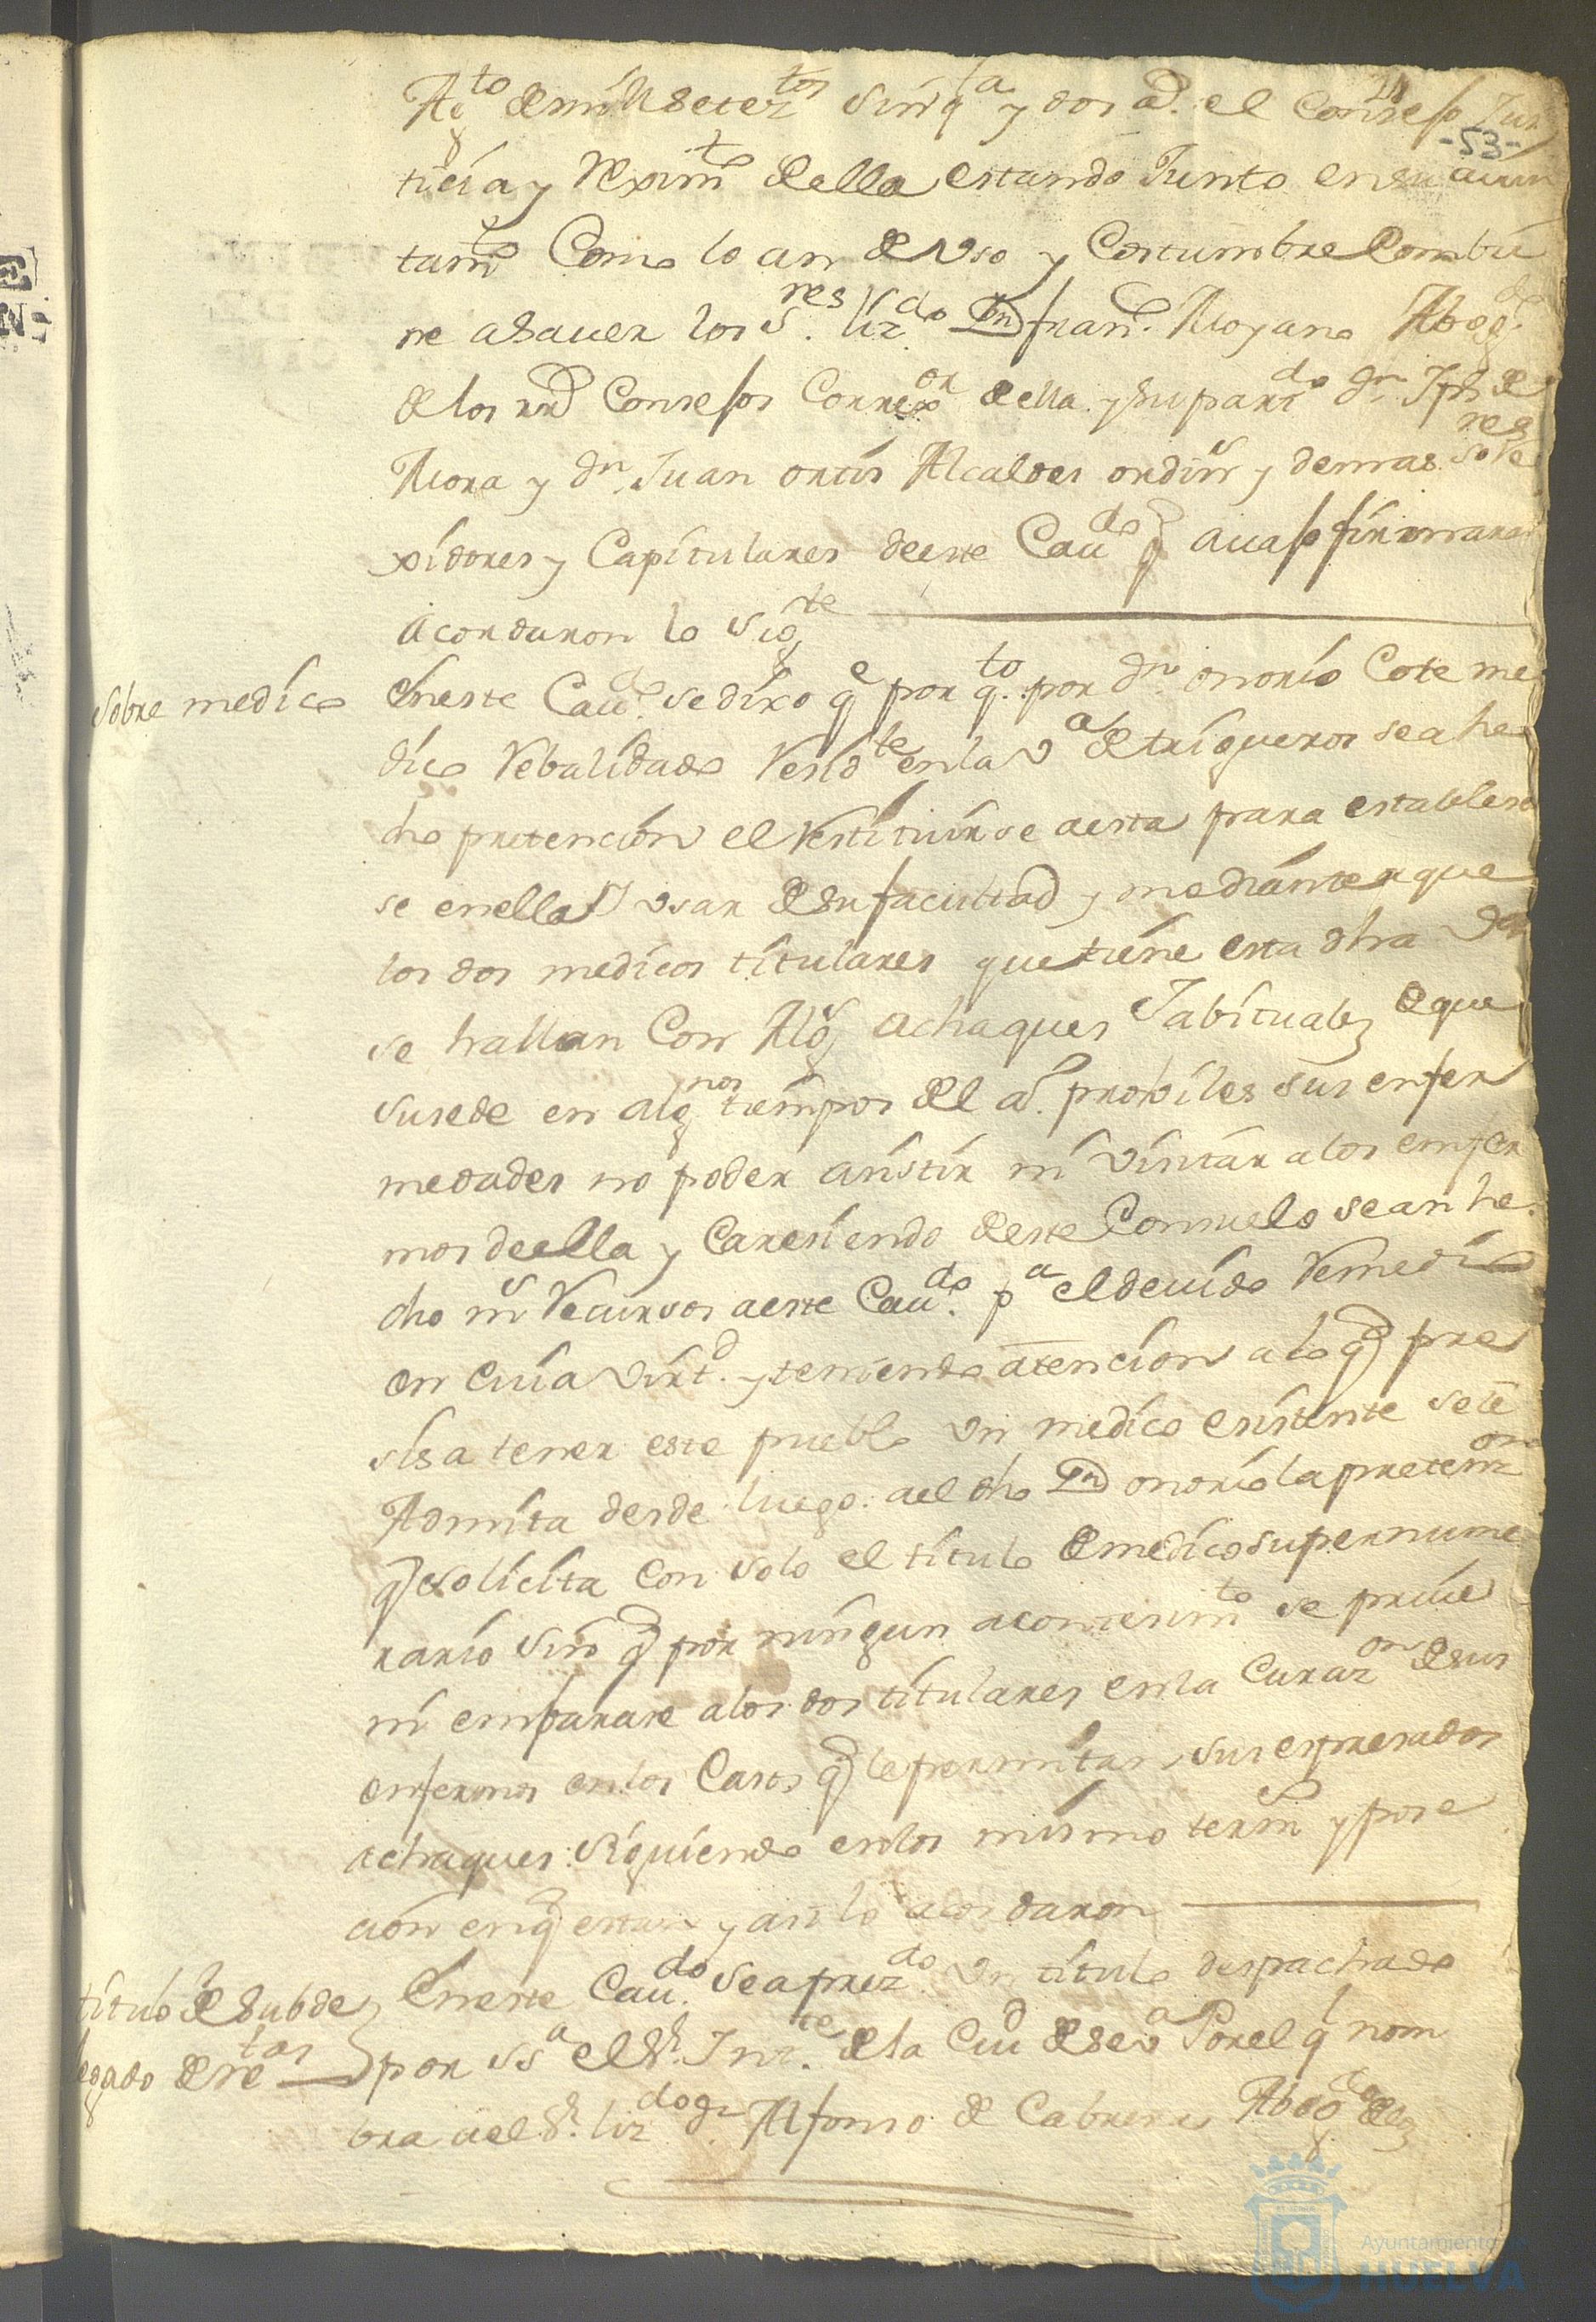 Agto de mill setestos sinqta y dos ad. el Consejo Jus
-53-
ticia y Reximto della estando Junto en su aiun
tamto Como lo an de Vso y Costumbre Combie
ne asauer los Sres lizdo Dn franco Moyano Abogdo
de los rrs Consejos Correxor della y su partdo Dn Jph de
Mora y Dn Juan ortis Alcaldes ordins y demas sres Re
xidores y Capitulares deeste Caudo q auajo firmaran
acordaron lo Sigte
Sobre medico
En este Caudo se dixo qe por qto por Dn onorio Cote me
dico Rebalidado Residte en la Va de trigueros se a he
cho pretencion el Restituirse a esta para estableser
se en ella y vsar de su facultad y mediante a que
los dos medicos titulares que tiene esta dha Va
se hallan Con Algs achaques Jabituales de que
susede en algnos tiempos del ao. proviles sus enfer
medades no poder asistir ni visitar a los enfer
mos de ella y Caresiendo deste Consuelo se an he
cho ms Recursos a este Caudo pa el deuido Remedio
en cuia virtd y teniendo atencion a lo q pre
sisa tener este pueblo vn medico existente se le
Admita desde luego a el dho Dn onorio la pretenzon
q solicita con solo el titulo de medico supernume
rario sin q por ningun acontesimto se priue
ni embarase a los dos titulares en la Curazon de sus
enfermos en los Casos q le permitan sus expresados
achaques siguiendo en los mismo termins y pose
cion en q estan y asi lo acordaron
titulo de subde
legado de rentas
En este Caudo se a prezdo vn titulo despachado
por Ssa el Sr Intte de la Ciud de Seva Por el ql nom
bra a el Sr lizdo Dn Alfonso de Cabrera Abogdo de los
Ayuntamiento de
HUELVA